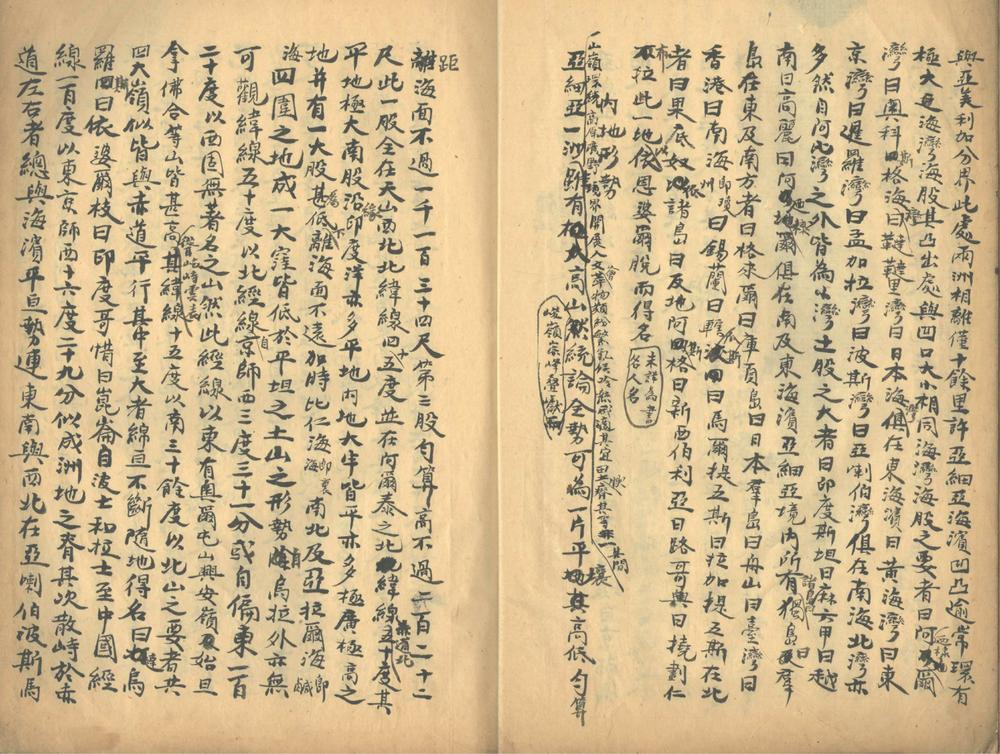 與亞美利加分界此處兩洲相離僅十餘里許亞細亞海濱凹凸逾常環有
極大邊海灣海股其凸出處與凹口大小相同海灣海股之要者曰阿爾
灣曰奧科斯格海曰韃韃里灣曰日本海俱在東海濱曰黃海灣曰東
京灣曰暹羅灣曰孟加拉灣曰波斯灣曰亞喇伯灣俱在南海北灣亦
多然自阿比灣之外皆為小灣土股之大者曰印度斯坦曰麻六甲曰越
南曰高麗曰阿地爾俱在南及東海濱亞細亞境內所有獨島曰群
島在東及南方者曰格來爾曰庫頁島曰日本群島曰舟山曰臺灣曰
香港曰南海州即瓊曰錫蘭曰轄瓜斯曰馬爾提五斯曰拉加提五斯在北
者曰果底奴諸島曰及地阿格曰新西伯利亞曰路哥輿曰撓割仁
布拉此一地以恩婆爾脫而得名
未詳為書名人名
內地形勢
一山嶺深統高原廣野境界開展人文萃物類紛繁
峻嶺崇峰疊嶽
亞細亞一洲雖有極大高山然統論全勢可為一片平壤其高低勻算
距
離海面不過一千一百三十四尺第二股勻算高不過二百二十二
尺此一股全在天山西北緯線四十五度並在阿爾泰之北緯線五十度其
平地極大南股沿印度洋亦多平地內地大半皆平亦多極廣極高之
地并有一大股甚低離海面不遠加時比仁海即裏海南北及亞拉爾海即鹹
海四圍之地成一大窪皆低於平坦之土山之形勢自烏拉外亦無
可觀緯線五十度以北經線自京師西三度三十一分或自偏東一百
二十度以西固無著名之山然此經線以東有奧爾屯山興安嶺始旦
拿佛合等山皆甚高其緯線十五度以南三十餘度以北山之要者共
四大嶺似皆與赤道平行其中至大者綿亘不斷隨地得名曰烏
羅斯曰依婆爾枝曰印度哥惜曰崑崙自波士和拉士至中國經
線一百度以東京師西十六度二十九分似成洲地之脊其次散峙於赤
道左右者總與海濱平亘勢連東南與西北在亞喇伯波斯馬